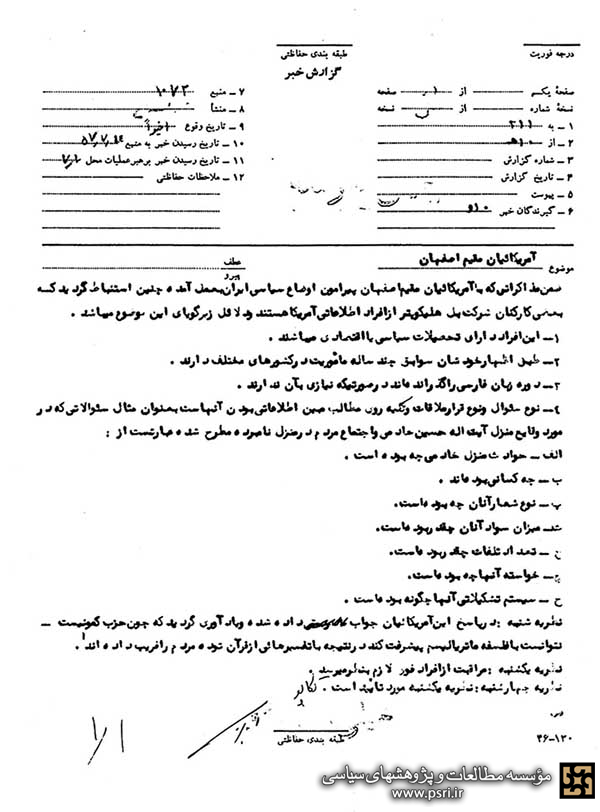 درجه فوریت
طبقه بندی حفاظتی
گزارش خبر
صفحهٔ یکم از ۱ صفحه
نسخهٔ شماره از نسخه
۱ – به ۳۱۱
۲ – از ۱۰ ه
۳ – شماره گزارش
۴ – تاریخ گزارش
۵ – پیوست
۶ – گیرندگان خبر
۷ – منبع ۱۰۷۲
۸ – منشأ
۹ – تاریخ وقوع اخیراً
۱۰ – تاریخ رسیدن خبر به منبع
۱۱ – تاریخ رسیدن خبر برهبر عملیات محل
۱۲ – ملاحظات حفاظتی
موضوع آمریکائیان مقیم اصفهان
عطف
پیرو
ضمن مذاکراتی که با آمریکائیان مقیم اصفهان پیرامون اوضاع سیاسی ایران بعمل آمده چنین استنباط گردید که
بعضی کارکنان شرکت بل هلیکوپتر از افراد اطلاعاتی آمریکا هستند و دلائل زیر گویای این موضوع میباشد .
۱– این افراد دارای تحصیلات سیاسی یا اقتصادی میباشند .
۲– طبق اظهار خودشان سوابق چند ساله مأموریت در کشورهای مختلف دارند .
۳– دوره زبان فارسی را گذرانده‌اند در صورتیکه نیازی بآن ندارند .
٤– نوع سئوال و نوع قرار ملاقات و تکیه روی مطالب مبین اطلاعاتی بودن آنهاست بعنوان مثال سئوالاتی که در
مورد وقایع منزل آیت اله حسین خادمی و اجتماع مردم در منزل نامبرده مطرح شده عبارتست از :
الف – حوادث منزل خادمی چه بوده است .
ب – چه کسانی بوده‌اند .
پ – نوع شعار آنان چه بوده است.
ت – میزان سواد آنان چقدر بوده است.
ج – تعداد تلفات چقدر بوده است.
چ – خواسته آنها چه بوده است.
ح – سیستم تشکیلاتی آنها چگونه بوده است.
نظریه شنبه : در پاسخ این آمریکائیان جواب داده شده و یادآوری گردید که چون حزب کمونیست –
نتوانست با فلسفه ماتریالیسم پیشرفت کند در نتیجه با تفسیرهائی از قرآن توده مردم را فریب داده‌اند .
نظریه یکشنبه : مراقبت از افراد فوق لازم بنظر میرسد .
نظریه چهارشنبه : نظریه یکشنبه مورد تأیید است .
طبقه بندی حفاظتی
۴۶-۱۳۰
۱/۱
مؤسسه مطالعات و پژوهشهای سیاسی
www.psri.ir